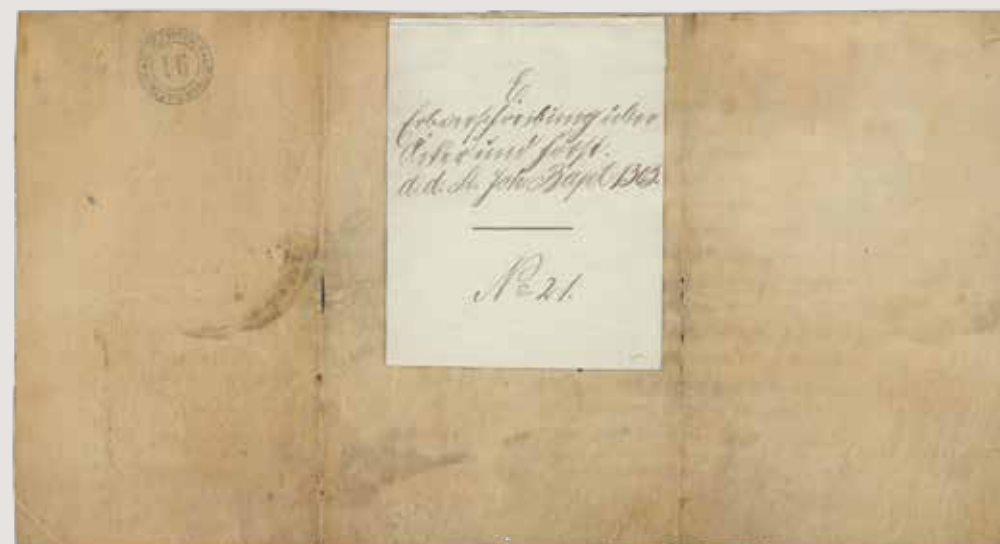 16
E
Erbverschreibung über
Äcker und
d. d. St. Joh. Bapt. 1362
No 21.